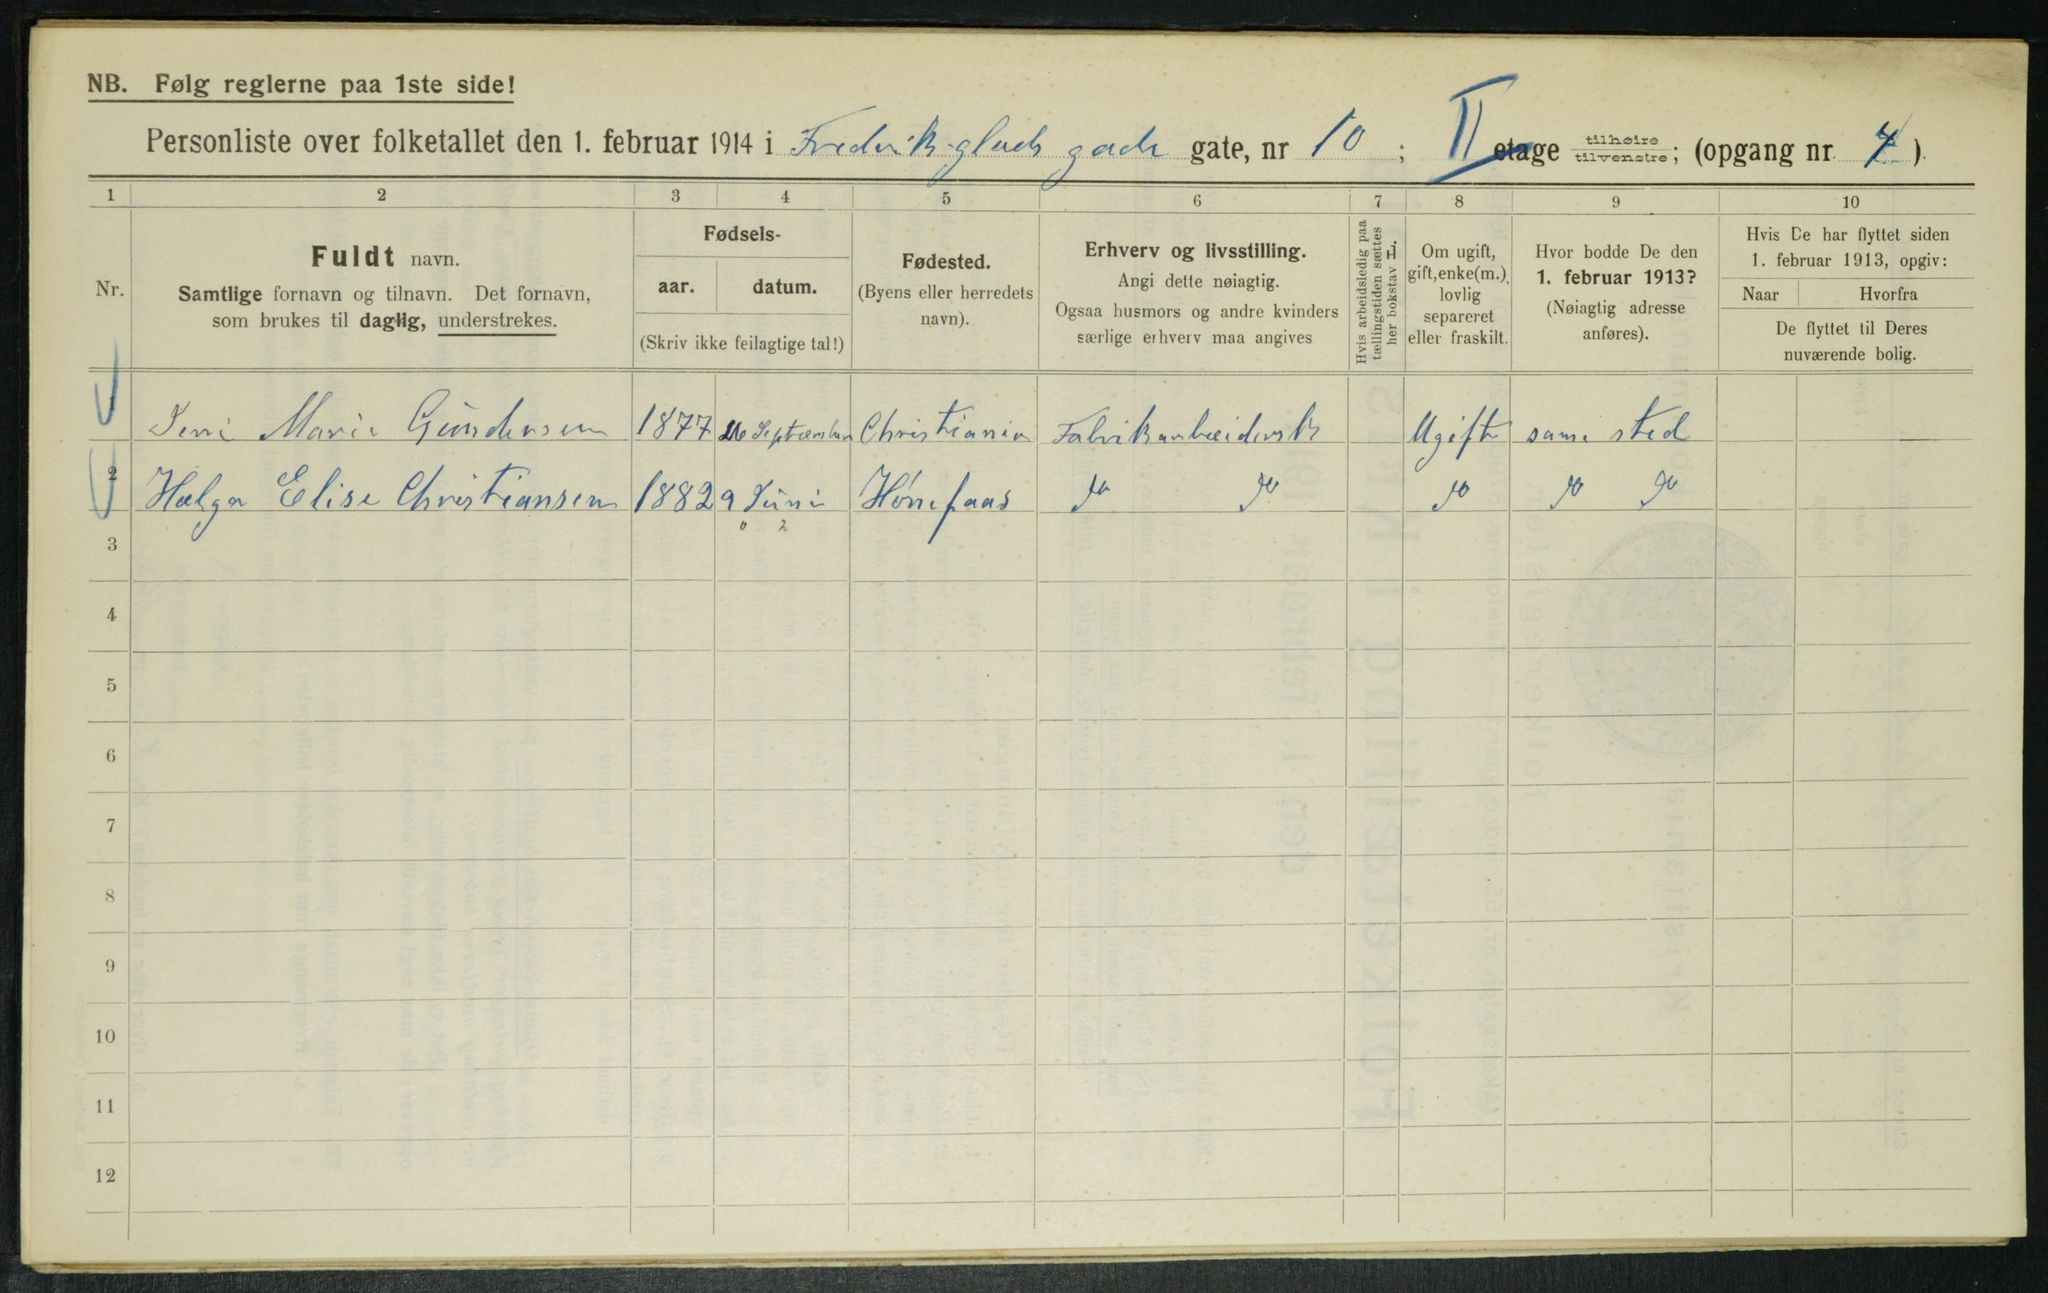 NB. Følg reglerne paa 1ste side!
Personliste over folketallet den 1. februar 1914 i Fredrik glads gade gate, nr 10; II etage tilhøire tilvenstre; (opgang nr. 4)
1 2 3 4 5 6 7 8 9 10
Nr.
Fuldt navn.
Samtlige fornavn og tilnavn. Det fornavn,
som brukes til daglig, understrekes.
Fødsels-
aar. datum.
(Skriv ikke feilagtige tal!)
Fødested.
(Byens eller herredets
navn).
Erhverv og livsstilling.
Angi dette nøiagtig.
Ogsaa husmors og andre kvinders
særlige erhverv maa angives
Hvis arbeidsledig paa
tællingstiden sættes
her bokstav L.
Om ugift,
gift, enke(m.),
lovlig
separeret
eller fraskilt.
Hvor bodde De den
1. februar 1913?
(Nøiagtig adresse
anføres).
Hvis De har flyttet siden
1. februar 1913, opgiv:
Naar Hvorfra
De flyttet til Deres
nuværende bolig.
Marie Gundersen 1877 26 September Christiania Fabrikarbeidersk Ugift same sted —
2 Helga Elise Christiansen 1882 9 Juni Hønefaas do do do do do
3
4
5
6
7
8
9
10
11
12